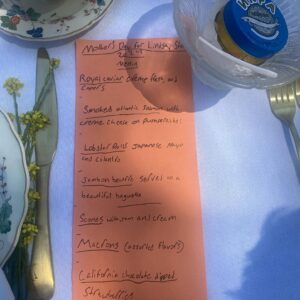 Mothers Day for Linda, 
Menu
Royal caviar creme fresh and
capers
Smoked atlantic salmon with
creme cheese on pumpernickel
Lobster Rolls Japanese mayo
and
Jambon beurre served on a
beautiful baguette
Scones with jam and cream
Macrons (assorted flavors)
California chocolate dipped
Strawberries